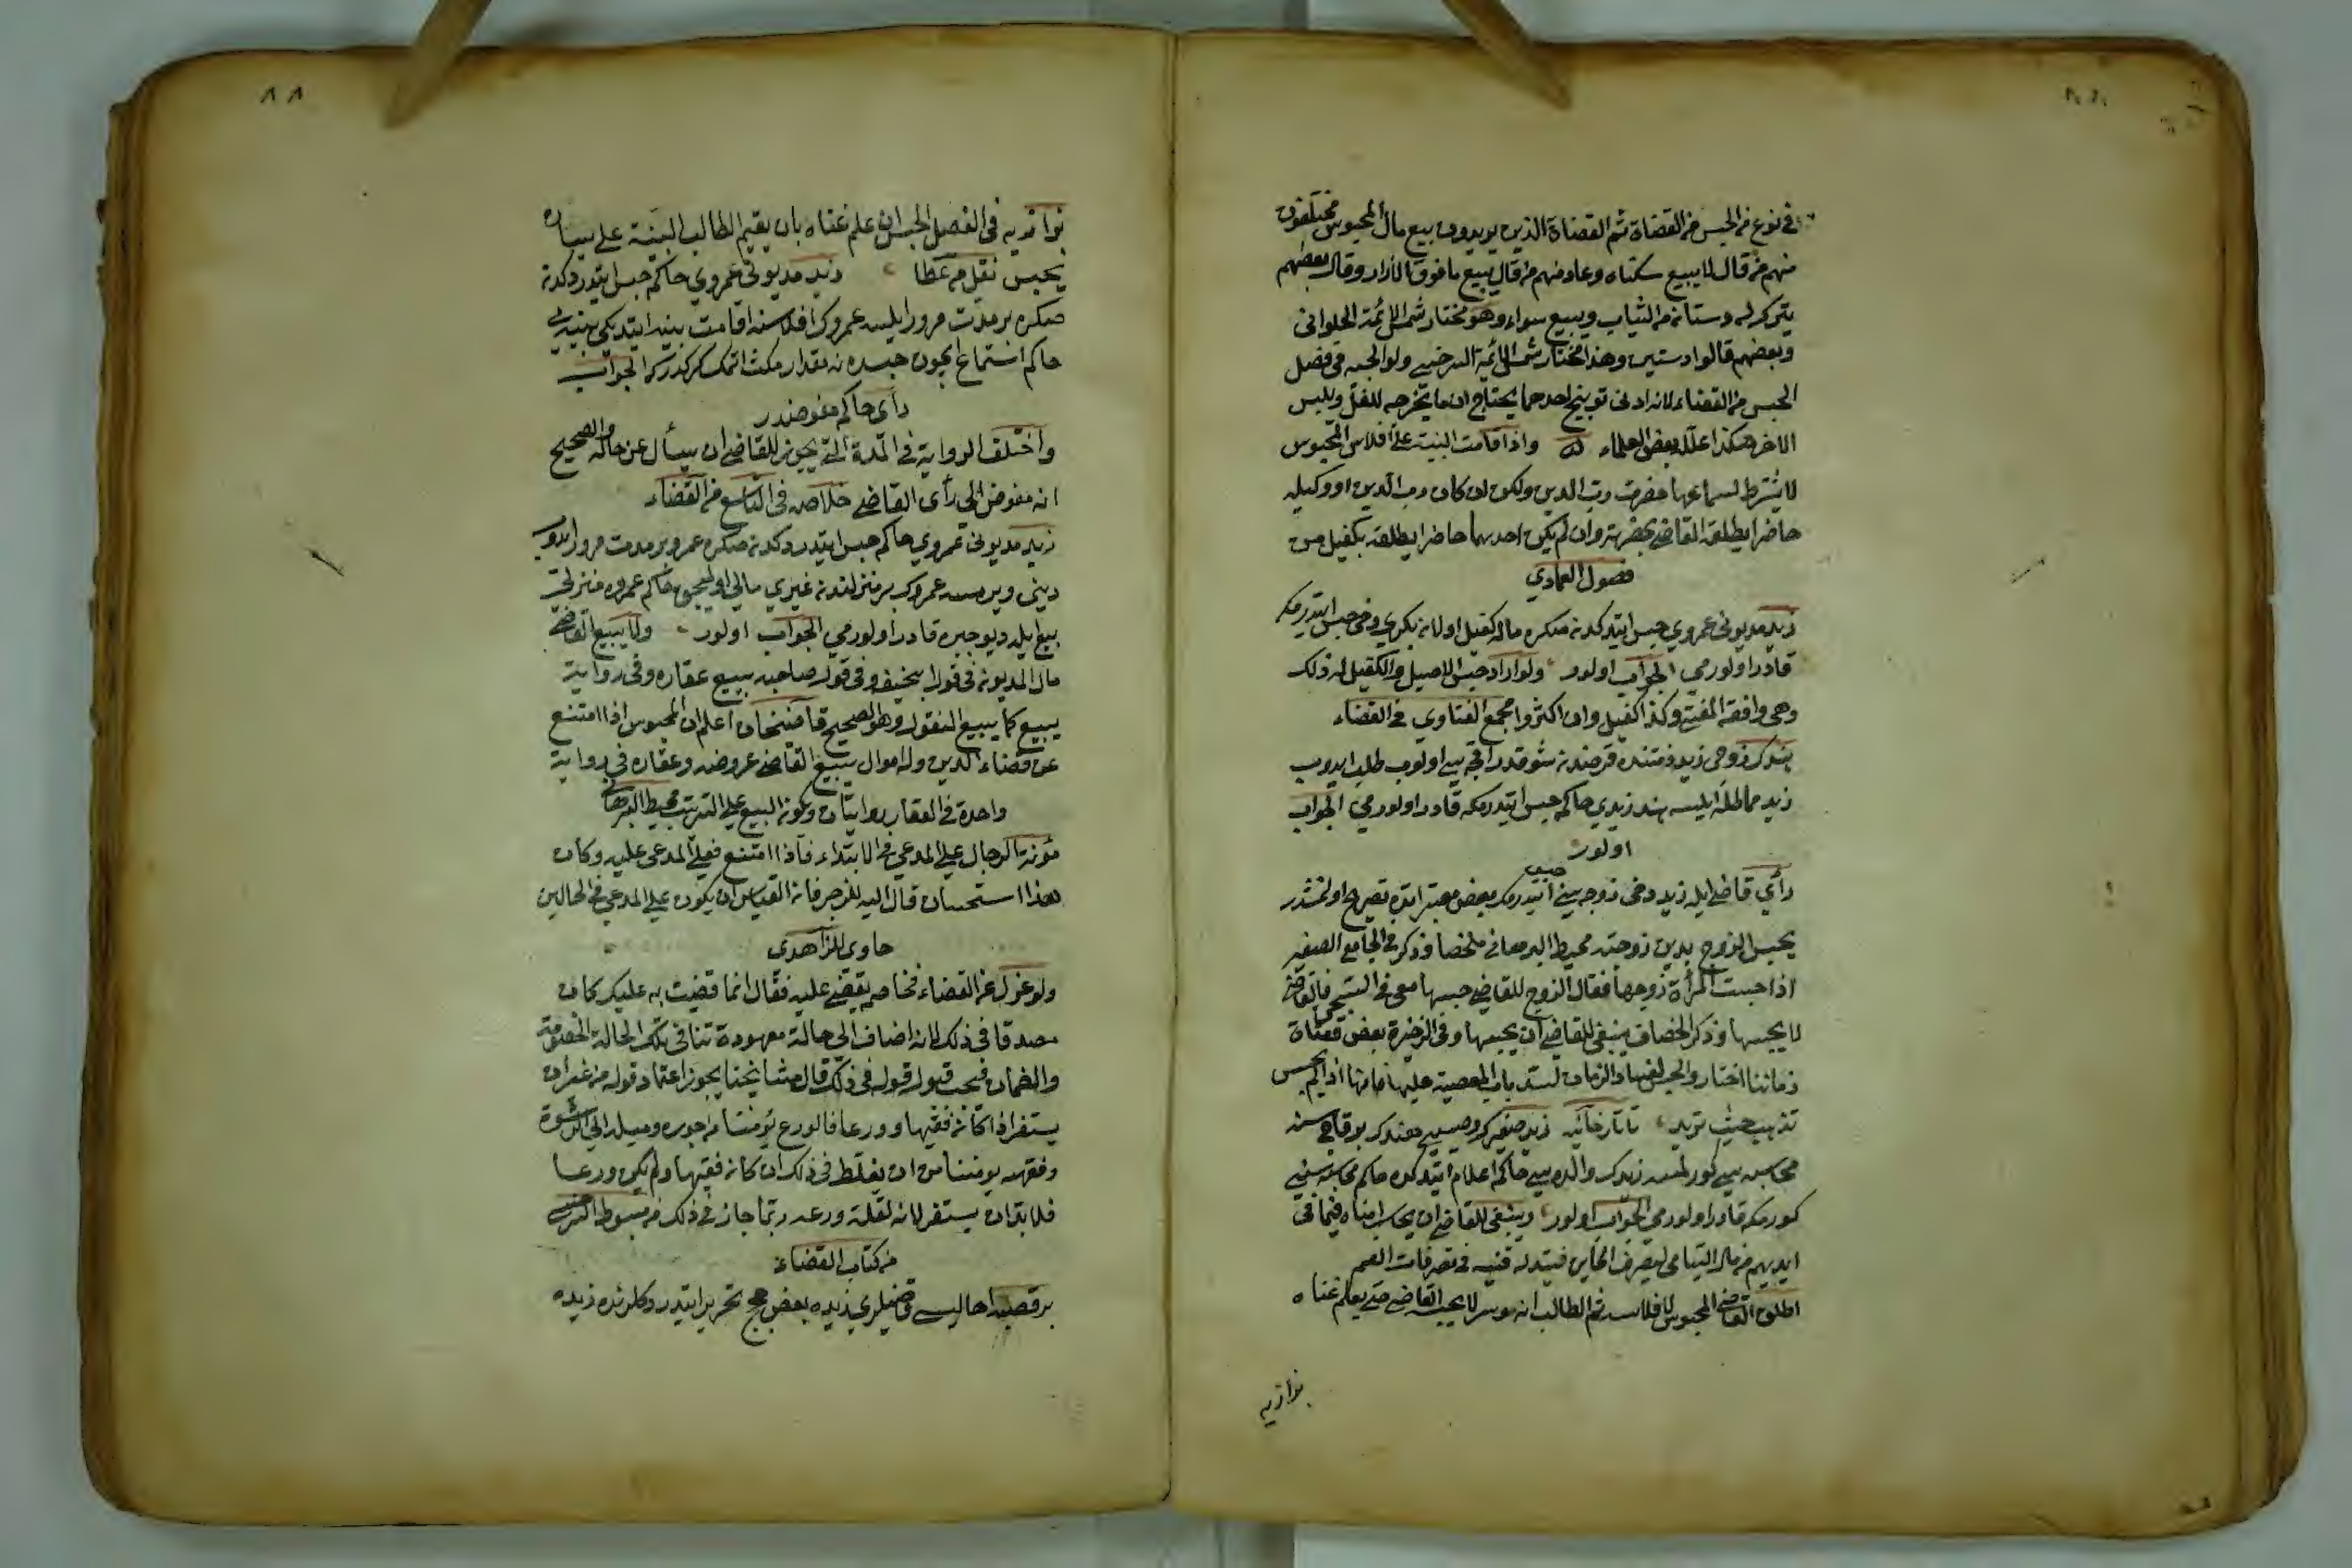 في نوع من الحبس من القضاة ثم القضاة الذين يريدون بيع مال المحبوس مختلفون
منهم من قال لا يبيع سكناه وعاد منهم من قال يبيع ما فوق الازار وقال بعضهم
يترك له دستا من الثياب ويبيع سواء وهو مختار شمس الائمة الحلواني
وبعضهم قالوا دستين وهذا مختار شمس الائمة السرخسي ولوالجيه في فصل
الحبس من القضاء لانه ادنى احدهما يحتاج الى يخرجه للغسل ويلبس
الاخر هكذا علله بعض العلماء واذا قامت البينة على افلاس المحبوس
لا يشترط لسماعها حضرت رب الدين ولكن ان كان رب الدين او وكيله
حاضرا يطلقه القاضي بحضرته وان لم يكن احدهما حاضرا يطلقه بكفيل من
فصول العمادي
زيد مديونى عمروي حبس ايتدكدنصكره ماله كفيل اولان بكري دخى حبس ايتدرمكه
قادر اولورمي الجواب اولور ولو اراد حبس الاصيل والكفيل له ذلك
وهي وافقة المفتي وكذا كفيل وان اكثروا مجمع الفتاوي في القضاء
هندك زوجى زيد ذمتنده قرضدن شوقدر اقچه سي اولوب طلب ايدوب
زيد مماطله ايلسه هند زيدي حاكمه حبس ايتدرمكه قادر اولورمي الجواب
اولور
رأي قاضي ايله زيد دخى زوجه سيني حبس ايتدرمك بعض معتبراتده تصريح اولنمشدر
يحبس الزوج بدين زوجته محيط البرهاني ملخصا وذكر في الجامع الصغير
اذا حبست المرأة زوجها فقال الزوج للقاضي احبسها معي في السجن فالقاضي
لا يحبسها وذكر الخصاف ينبغي للقاضي ان يحبسها وفي الذخيرة بعض قضاة
زماننا اختاروا الحبس لفساد الزمان لسد باب المعصية عليها فانها اذا لم تحبس
تذهب حيث تريد تاتارخانيه زيد صغيرك وصيسي هندك
محاسبه سي كورلمسه زيدك والده سي حاكمه اعلام ايتدكده حاكم محاسبه سني
كورمكه قادر اولورمي الجواب اولور وينبغي للقاضي ان يحاسب امناءه فيما في
ايديهم من مال اليتامى ليعرف الخاين فيستبدله قنيه في تصرفات القيم
اطلق القاضي المحبوس لافلاسه ثم الطالب انه موسر لا يحبسه القاضي حتى يعلم غناه
بزازيه
٨٨
بزازيه في الفصل الحبس ان علم غناه بان يقيم الطالب البينة على يساره
يحبس نقل من عطا زيد مديونى عمروي حاكم حبس ايتدردكدن
صكره بر مدت مرور ايلسه عمرو افلاسنه اقامت بينه ايتدكي بينه يي
حاكم استماع ايچون حبسده نه مقدار مكث اتمك كركدر الجواب
رأى حاكمه مفوضدر
واختلف الرواية في المدة التي يجوز للقاضي ان يسأل عن حاله والصحيح
انه مفوض الى رأى القاضي خلاصه في التاسع من القضاء
زيد مديونى عمروي حاكم حبس ايتدردكدن صكره عمرو بر مدت مرور ايدوب
ديني ويرمسه عمروك بر منزلندن غيري مالي اولميجق حاكم عمروه منزلنى
بيع ايله ديو جبره قادر اولورمي الجواب اولور ولا يبيع القاضي
مال المديون في قول ابي حنيفه وفي قول صاحبيه يبيع عقاره وفي رواية
يبيع كما يبيع المنقول وهو الصحيح قاضيخان اعلم ان المحبوس اذا امتنع
عن قضاء الدين وله اموال يبيع القاضي عروضه وعقاره في رواية
واحدة في العقار روايتان ويكون البيع على الترتيب محيط البرهاني
مؤنة الرجال على المدعي في الابتداء فاذا امتنع فعلى المدعى عليه وكان
هذا استحسان قال اليه للزجر فان القياس ان يكون على المدعي في الحالين
حاوى للزاهدى
ولو عزل عن القضاء فخاصم يقضي عليه فقال انما قضيت به عليك كان
مصدقا في ذلك لانه اضاف الى حالة معهودة تنافي تلك الحالة الخصومة
والضمان فيجب قبول قوله في ذلك قال مشايخنا يجوز اعتماد قوله من غير ان
يستفسر اذا كان فقيها وورعا فالورع يؤمننا من جوره وميله الى الرشوة
وفقهه يومننا من ان يغلط في ذلك ان كان فقيها ولم يكن ورعا
فلا بد ان يستفسر لانه لقلة ورعه ربما جاز في ذلك من مبسوط السرخسي
من كتاب القضاء
بر قصبه اهاليسي قاضيلري زيده بعض حجج تحرير ايتدردكلرنده زيده